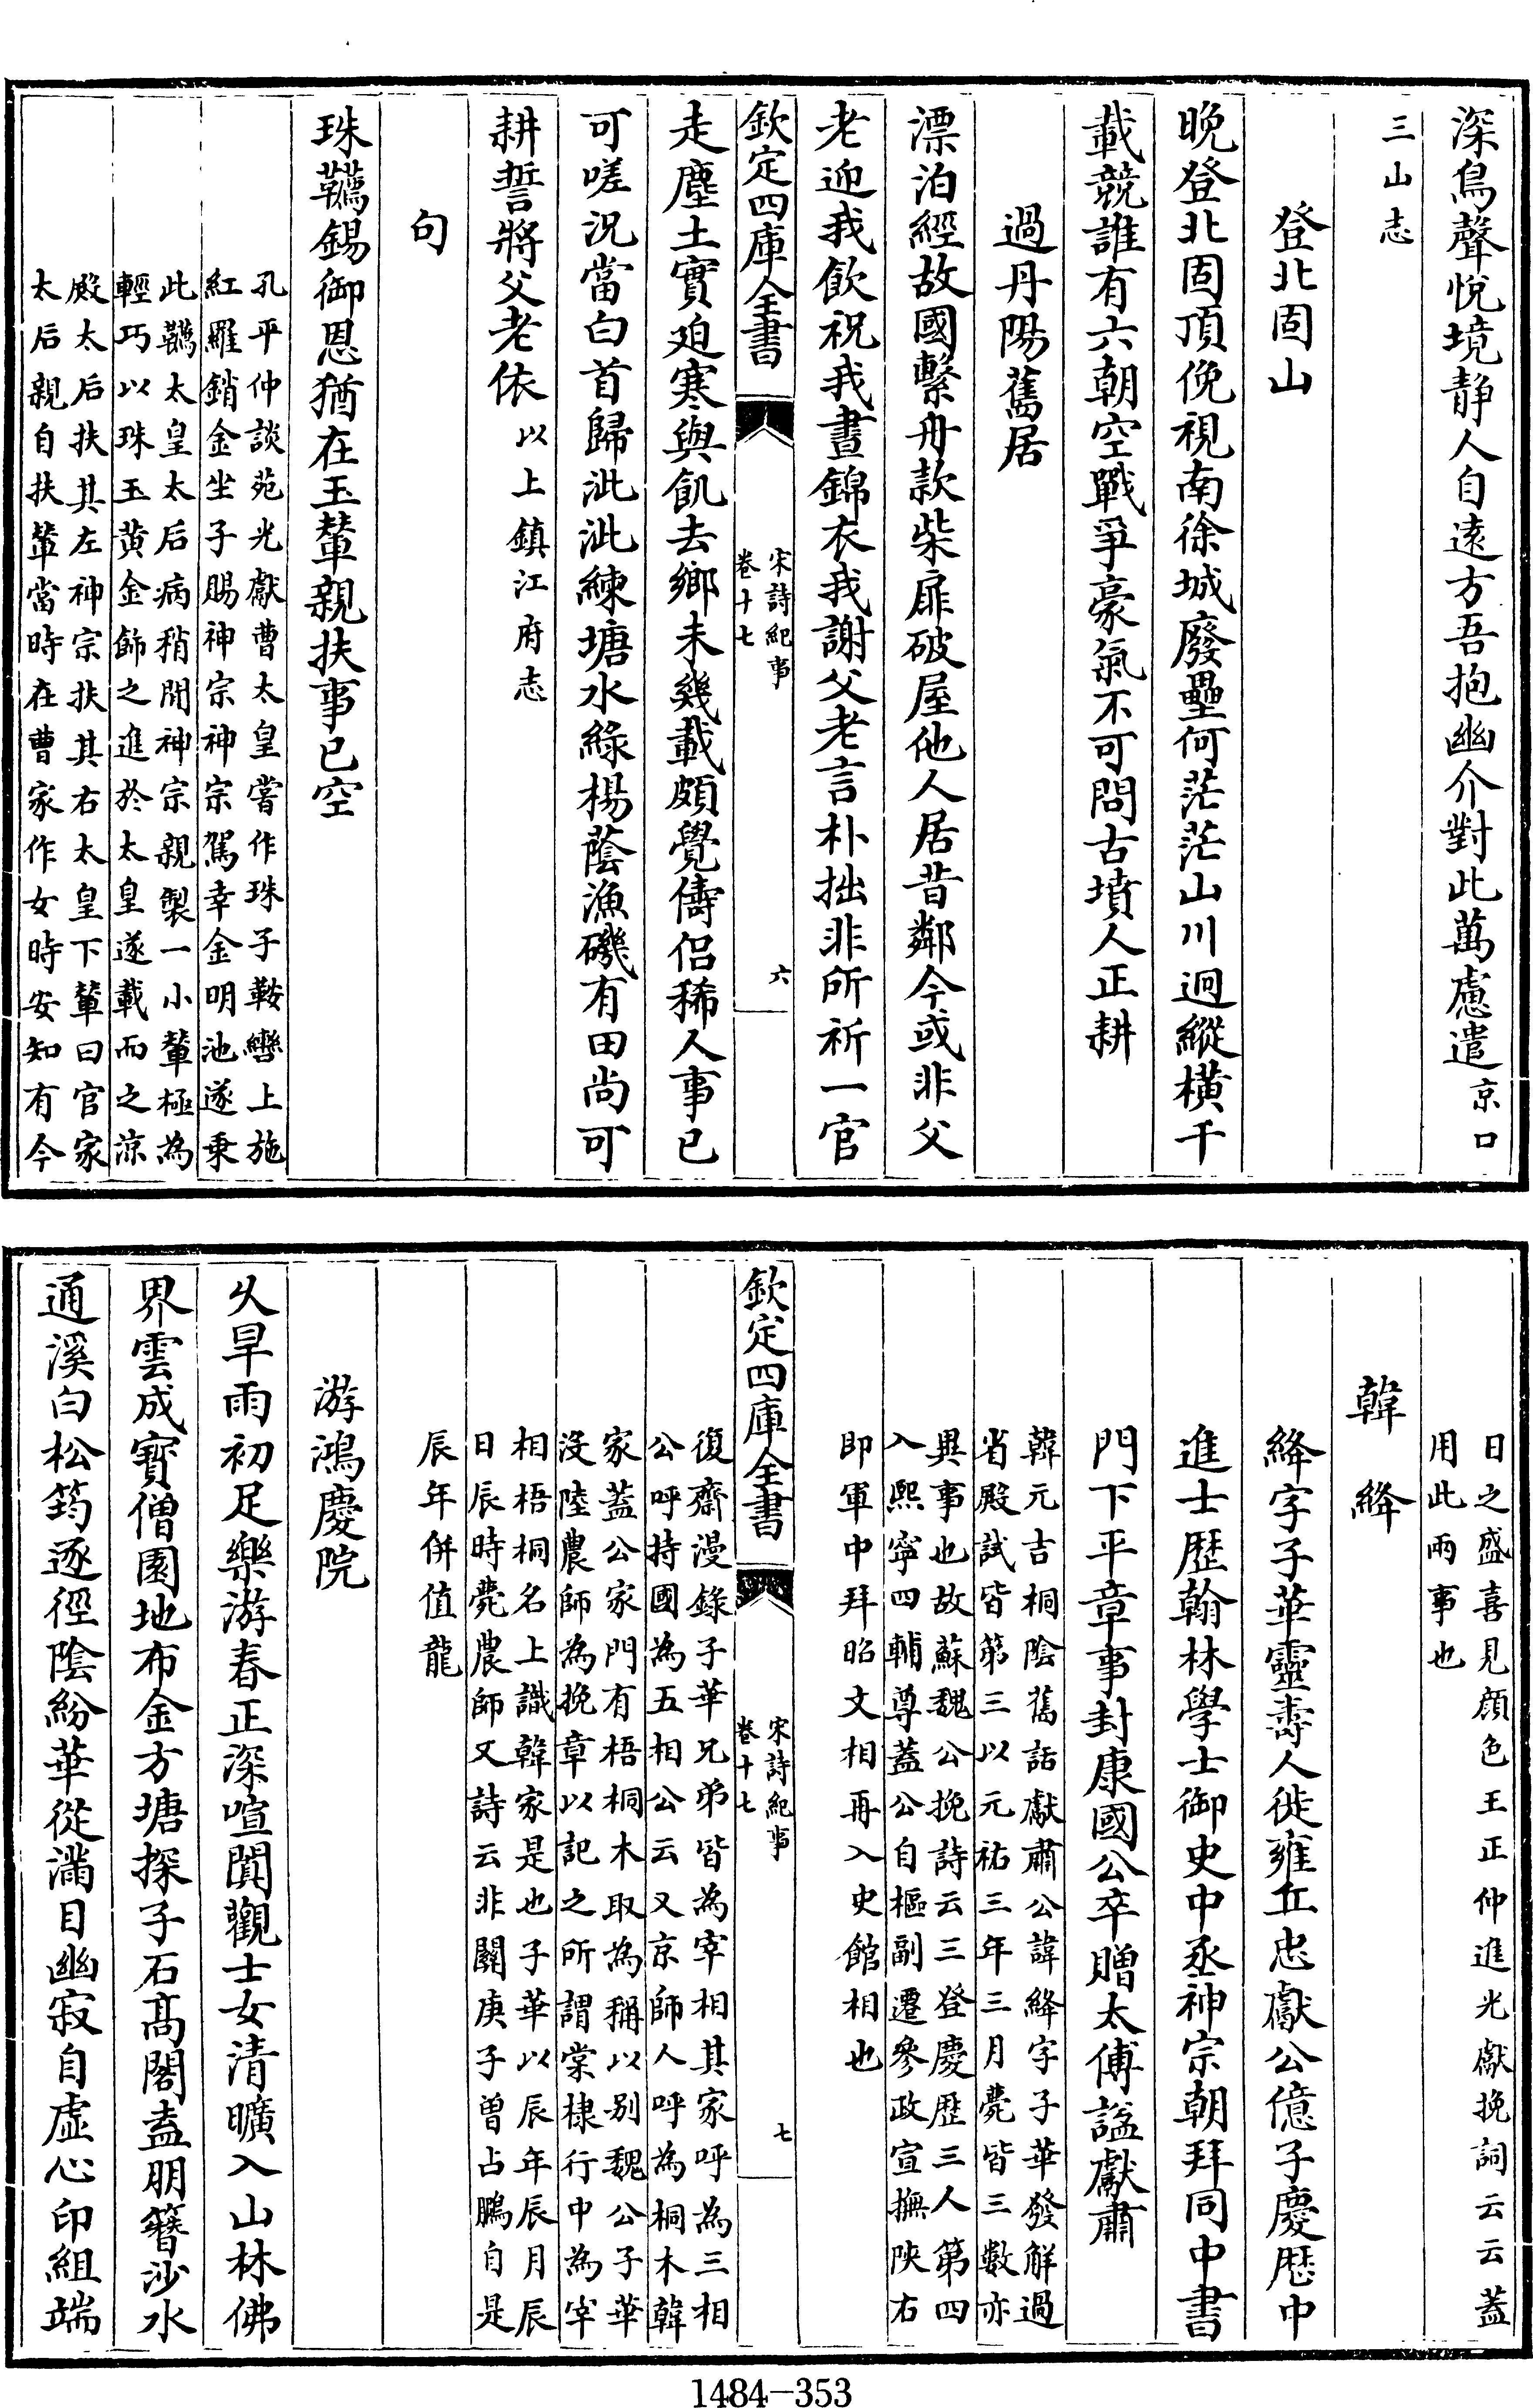 深鳥聲悅境靜人自遠方吾抱幽介對此萬慮遣京口
三山志
登北固山
晚登北固頂俛視南徐城廢壘何茫茫山川迥縱橫千
載競誰有六朝空戰爭豪氣不可問古墳人正耕
過丹陽舊居
漂泊經故國繫舟款柴扉破屋他人居昔鄰今或非父
老迎我飲祝我晝錦衣我謝父老言朴拙非所祈一官
欽定四庫全書
宋詩紀事
卷十七
六
走塵土實迫寒與飢去鄉未幾載頗覺儔侶稀人事已
可嗟況當白首歸泚泚練塘水綠楊蔭漁磯有田尚可
耕誓將父老依以上鎮江府志
句
珠韉錫御恩猶在玉輦親扶事已空
孔平仲談苑光獻曹太皇嘗作珠子鞍轡上施
紅羅銷金坐子賜神宗神宗駕幸金明池遂乗
此韉太皇太后病稍閒神宗親製一小輦極為
輕巧以珠玉黃金飾之進於太皇遂載而之涼
殿太后扶其左神宗扶其右太皇下輦曰官家
太后親自扶輦當時在曹家作女時安知有今
日之盛喜見顏色王正仲進光獻挽詞云云蓋
用此兩事也
韓絳
絳字子華靈壽人徙雍丘忠獻公億子慶歷中
進士歷翰林學士御史中丞神宗朝拜同中書
門下平章事封康國公卒贈太傅諡獻肅
韓元吉桐陰舊話獻肅公諱絳字子華發解過
省殿試皆第三以元祐三年三月薨皆三數亦
異事也故蘇魏公挽詩云三登慶歷三人第四
入熙寧四輔尊蓋公自樞副遷參政宣撫陝右
即軍中拜昭文相再入史館相也
欽定四庫全書
宋詩紀事
卷十七
七
復齋漫錄子華兄弟皆為宰相其家呼為三相
公呼持國為五相公云又京師人呼為桐木韓
家蓋公家門有梧桐木取為稱以別魏公子華
沒陸農師為挽章以記之所謂棠棣行中為宰
相梧桐名上識韓家是也子華以辰年辰月辰
日辰時薨農師又詩云非關庚子曽占鵬自是
辰年併值龍
游鴻慶院
乆旱雨初足樂游春正深喧闐觀士女清曠入山林佛
界雲成寶僧園地布金方塘探子石髙閣盍朋簪沙水
通溪白松筠逐徑陰紛華從滿目幽寂自虛心印組端
1484-353